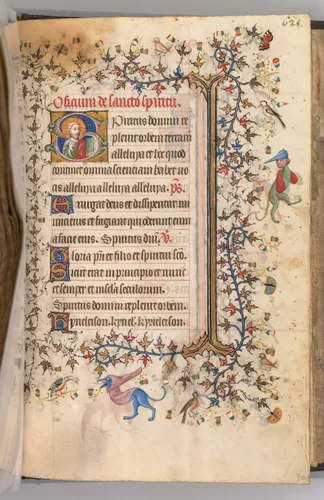 625.
Officium de sancto spiritu.
Spiritus domini re
pleuit orbem terrarum
alleluya et hoc quod
continet omnia scientiam habet uo
cis alleluya alleluya alleluya. ps.
Exurgat deus et dissipentur ini
mici eius et fugiant qui oderunt eum
a facie eius. Spiritus dni. V.
Gloria pri et filio et spiritui sco.
Sicut erat in principio et nunc
et semper et in secula seculorum.
Spiritus domini repleuit orbem.
Kyrieleison. kyriel. kyrieleison.